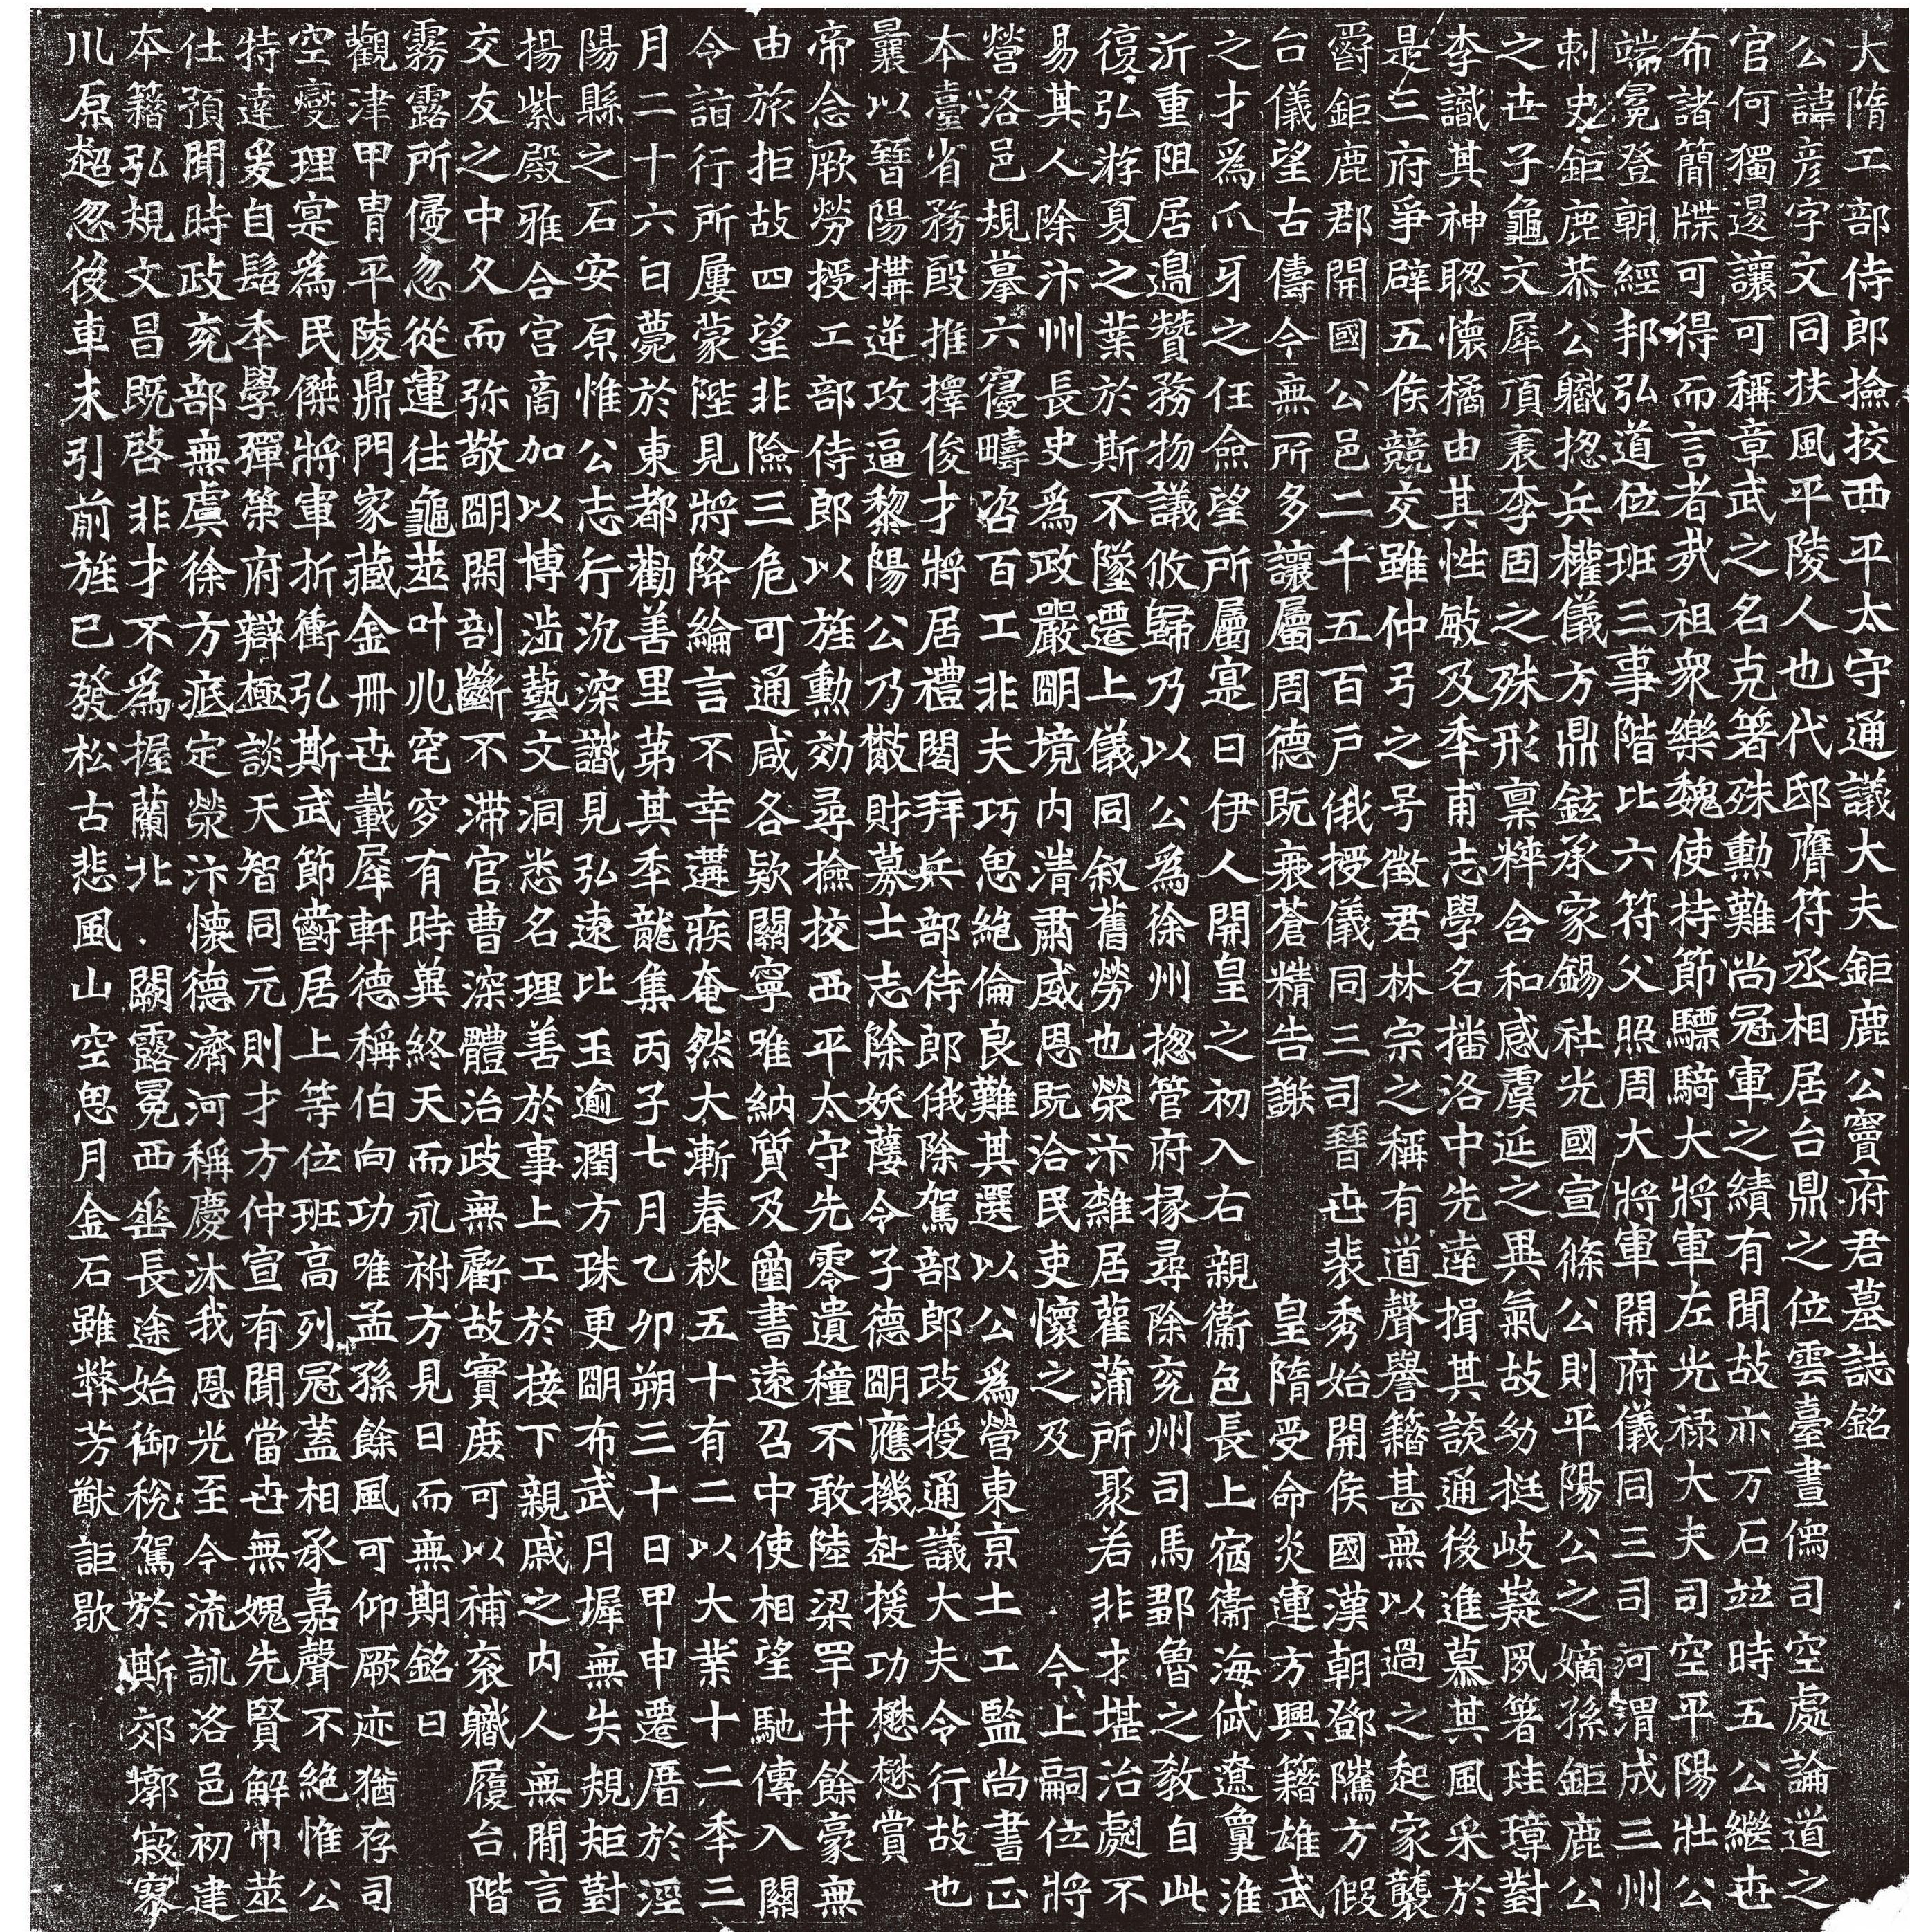 大隋工部侍郎撿挍西平太守通議大夫鉅鹿公竇府君墓誌銘
公諱彦字文同扶風平陵人也代邸膺符丞相居台鼎之位雲臺晝儁司空處論道之
官何獨邊讓可稱章武之名克著殊勳難尚冠軍之績有聞故亦万石竝時五公繼世
布諸簡牒可得而言者矣祖衆樂魏使持節驃騎大將軍左光祿大夫司空平陽壯公
端冕登朝經邦弘道位班三事階比六符父照周大將軍開府儀同三司河渭成三州
刺史鉅鹿恭公職揔兵權儀方鼎鉉承家錫社光國宣條公則平陽公之嫡孫鉅鹿公
之世子龜文犀頂裹李固之殊形稟粹含和感虞延之異氣故幼挺岐嶷夙著珪璋對
李識其神聡懷橘由其性敏及年甫志學名播洛中先達揖其談通後進慕其風采於
是三府爭辟五侯競交雖仲弓之号徵君林宗之稱有道聲譽籍甚無以過之起家襲
爵鉅鹿郡開國公邑二千五百戶俄授儀同三司晉世裴秀始開侯國漢朝鄧隲方假
台儀望古儔今無所多讓屬周德既衰蒼精告謝 皇隋受命炎運方興籍雄武
之才爲爪牙之任僉望所屬寔曰伊人開皇之初入右親衞色長上宿衞海岱遼敻淮
沂重阻居邊贊務物議攸歸乃以公爲徐州揔管府掾尋除兗州司馬鄒魯之教自此
復弘游夏之業於斯不墜遷上儀同叙舊勞也滎汴雜居萑蒲所聚若非才堪治劇不
易其人除汴州長史爲政嚴明境内清肅威恩既洽民吏懷之及 今上嗣位將
營洛邑規摹六寢疇咨百工非夫巧思絶倫良難其選以公爲營東京土工監尚書正
本臺省務殷推擇俊才將居禮閤拜兵部侍郎俄除駕部郎改授通議大夫令行故也
曩以晉陽搆逆攻逼黎陽公乃散財募士志除妖孽令子德明應機赴援功懋懋賞
帝念厥勞授工部侍郎以旌勳効尋撿挍西平太守先零遺種不敢陸梁罕井餘豪無
由旅拒故四望非險三危可通咸各欵關寧唯納質及璽書遠召中使相望馳傳入關
令詣行所屢蒙陛見將降綸言不幸遘疾奄然大漸春秋五十有二以大業十二年三
月二十六日薨於東都勸善里第其年龍集丙子七月乙卯朔三十日甲申遷厝於涇
陽縣之石安原惟公志行沉深識見弘遠比玉逾潤方珠更明布武月墀無失規矩對
揚紫殿雅合宮商加以博涉藝文洞悉名理善於事上工於接下親戚之内人無閒言
交友之中久而弥敬明閑剖斷不滯官曹深體治政無虧故實庶可以補衮職履台階
霧露所侵忽從運往龜筮叶兆窀穸有時葬終天而永祔方見日而無期銘曰
觀津甲冑平陵鼎門家藏金冊世載犀軒德稱伯向功唯孟孫餘風可仰厥迹猶存司
空燮理寔為民傑將軍折衝弘斯武節爵居上等位班高列冠蓋相承嘉聲不絶惟公
特達爰自髫年學彈策府辯極談天智同元則才方仲宣有聞當世無媿先賢解巾筮
仕預聞時政兗部無虞徐方底定滎汴懷德濟河稱慶沐我恩光至今流詠洛邑初建
本籍弘規文昌既啓非才不為握蘭北 闕露冕西垂長途始御稅駕於斯郊墎寂寥
川原超忽後車未引前旌已發松古悲風山空思月金石雖弊芳猷詎歇